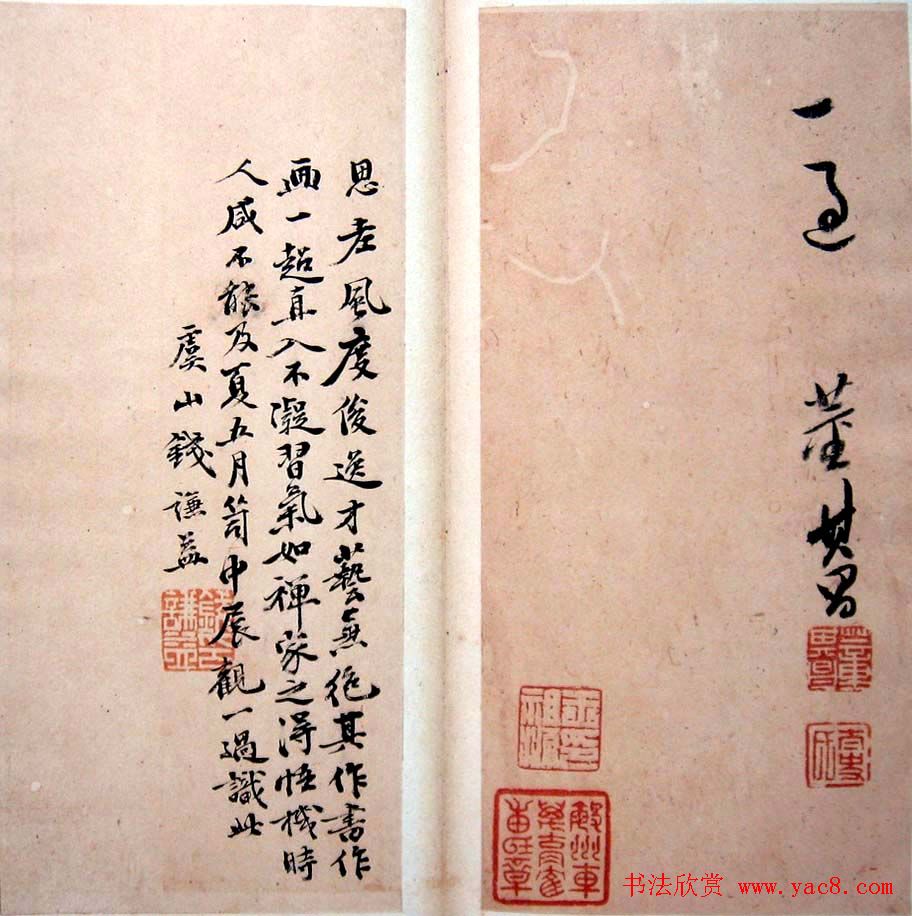 一過
董其昌
思老風度俊逸才藝無絶其作書作
画一超真入不凝習氣如禪家之得悟機時
人咸不能及夏五月笥中展觀一過識此
虞山錢謙益
书法欣赏 www.yac8.com